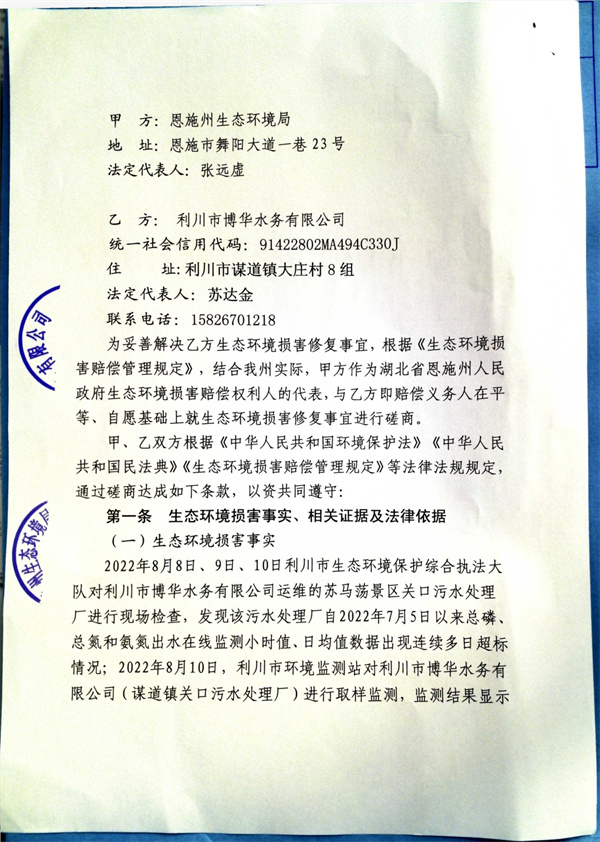 甲 方：恩施州生态环境局
地 址：恩施市舞阳大道一巷 23 号
法定代表人：张远虚
乙 方： 利川市博华水务有限公司
统一社会信用代码：91422802MA494C330J
住 址:利川市谋道镇大庄村 8 组
法定代表人：苏达金
联系电话：15826701218
为妥善解决乙方生态环境损害修复事宜，根据《生态环境损
害赔偿管理规定》，结合我州实际，甲方作为湖北省恩施州人民
政府生态环境损害赔偿权利人的代表，与乙方即赔偿义务人在平
等、自愿基础上就生态环境损害修复事宜进行磋商。
甲、乙双方根据《中华人民共和国环境保护法》《中华人民
共和国民法典》《生态环境损害赔偿管理规定》等法律法规规定，
通过磋商达成如下条款，以资共同遵守：
第一条 生态环境损害事实、相关证据及法律依据
（一）生态环境损害事实
2022年8月8日、9日、10日利川市生态环境保护综合执法大
队对利川市博华水务有限公司运维的苏马荡景区关口污水处理
厂进行现场检查，发现该污水处理厂自2022年7月5日以来总磷、
总氮和氨氮出水在线监测小时值、日均值数据出现连续多日超标
情况；2022年8月10日，利川市环境监测站对利川市博华水务有
限公司（谋道镇关口污水处理厂）进行取样监测，监测结果显示
有限公司
州生态环境